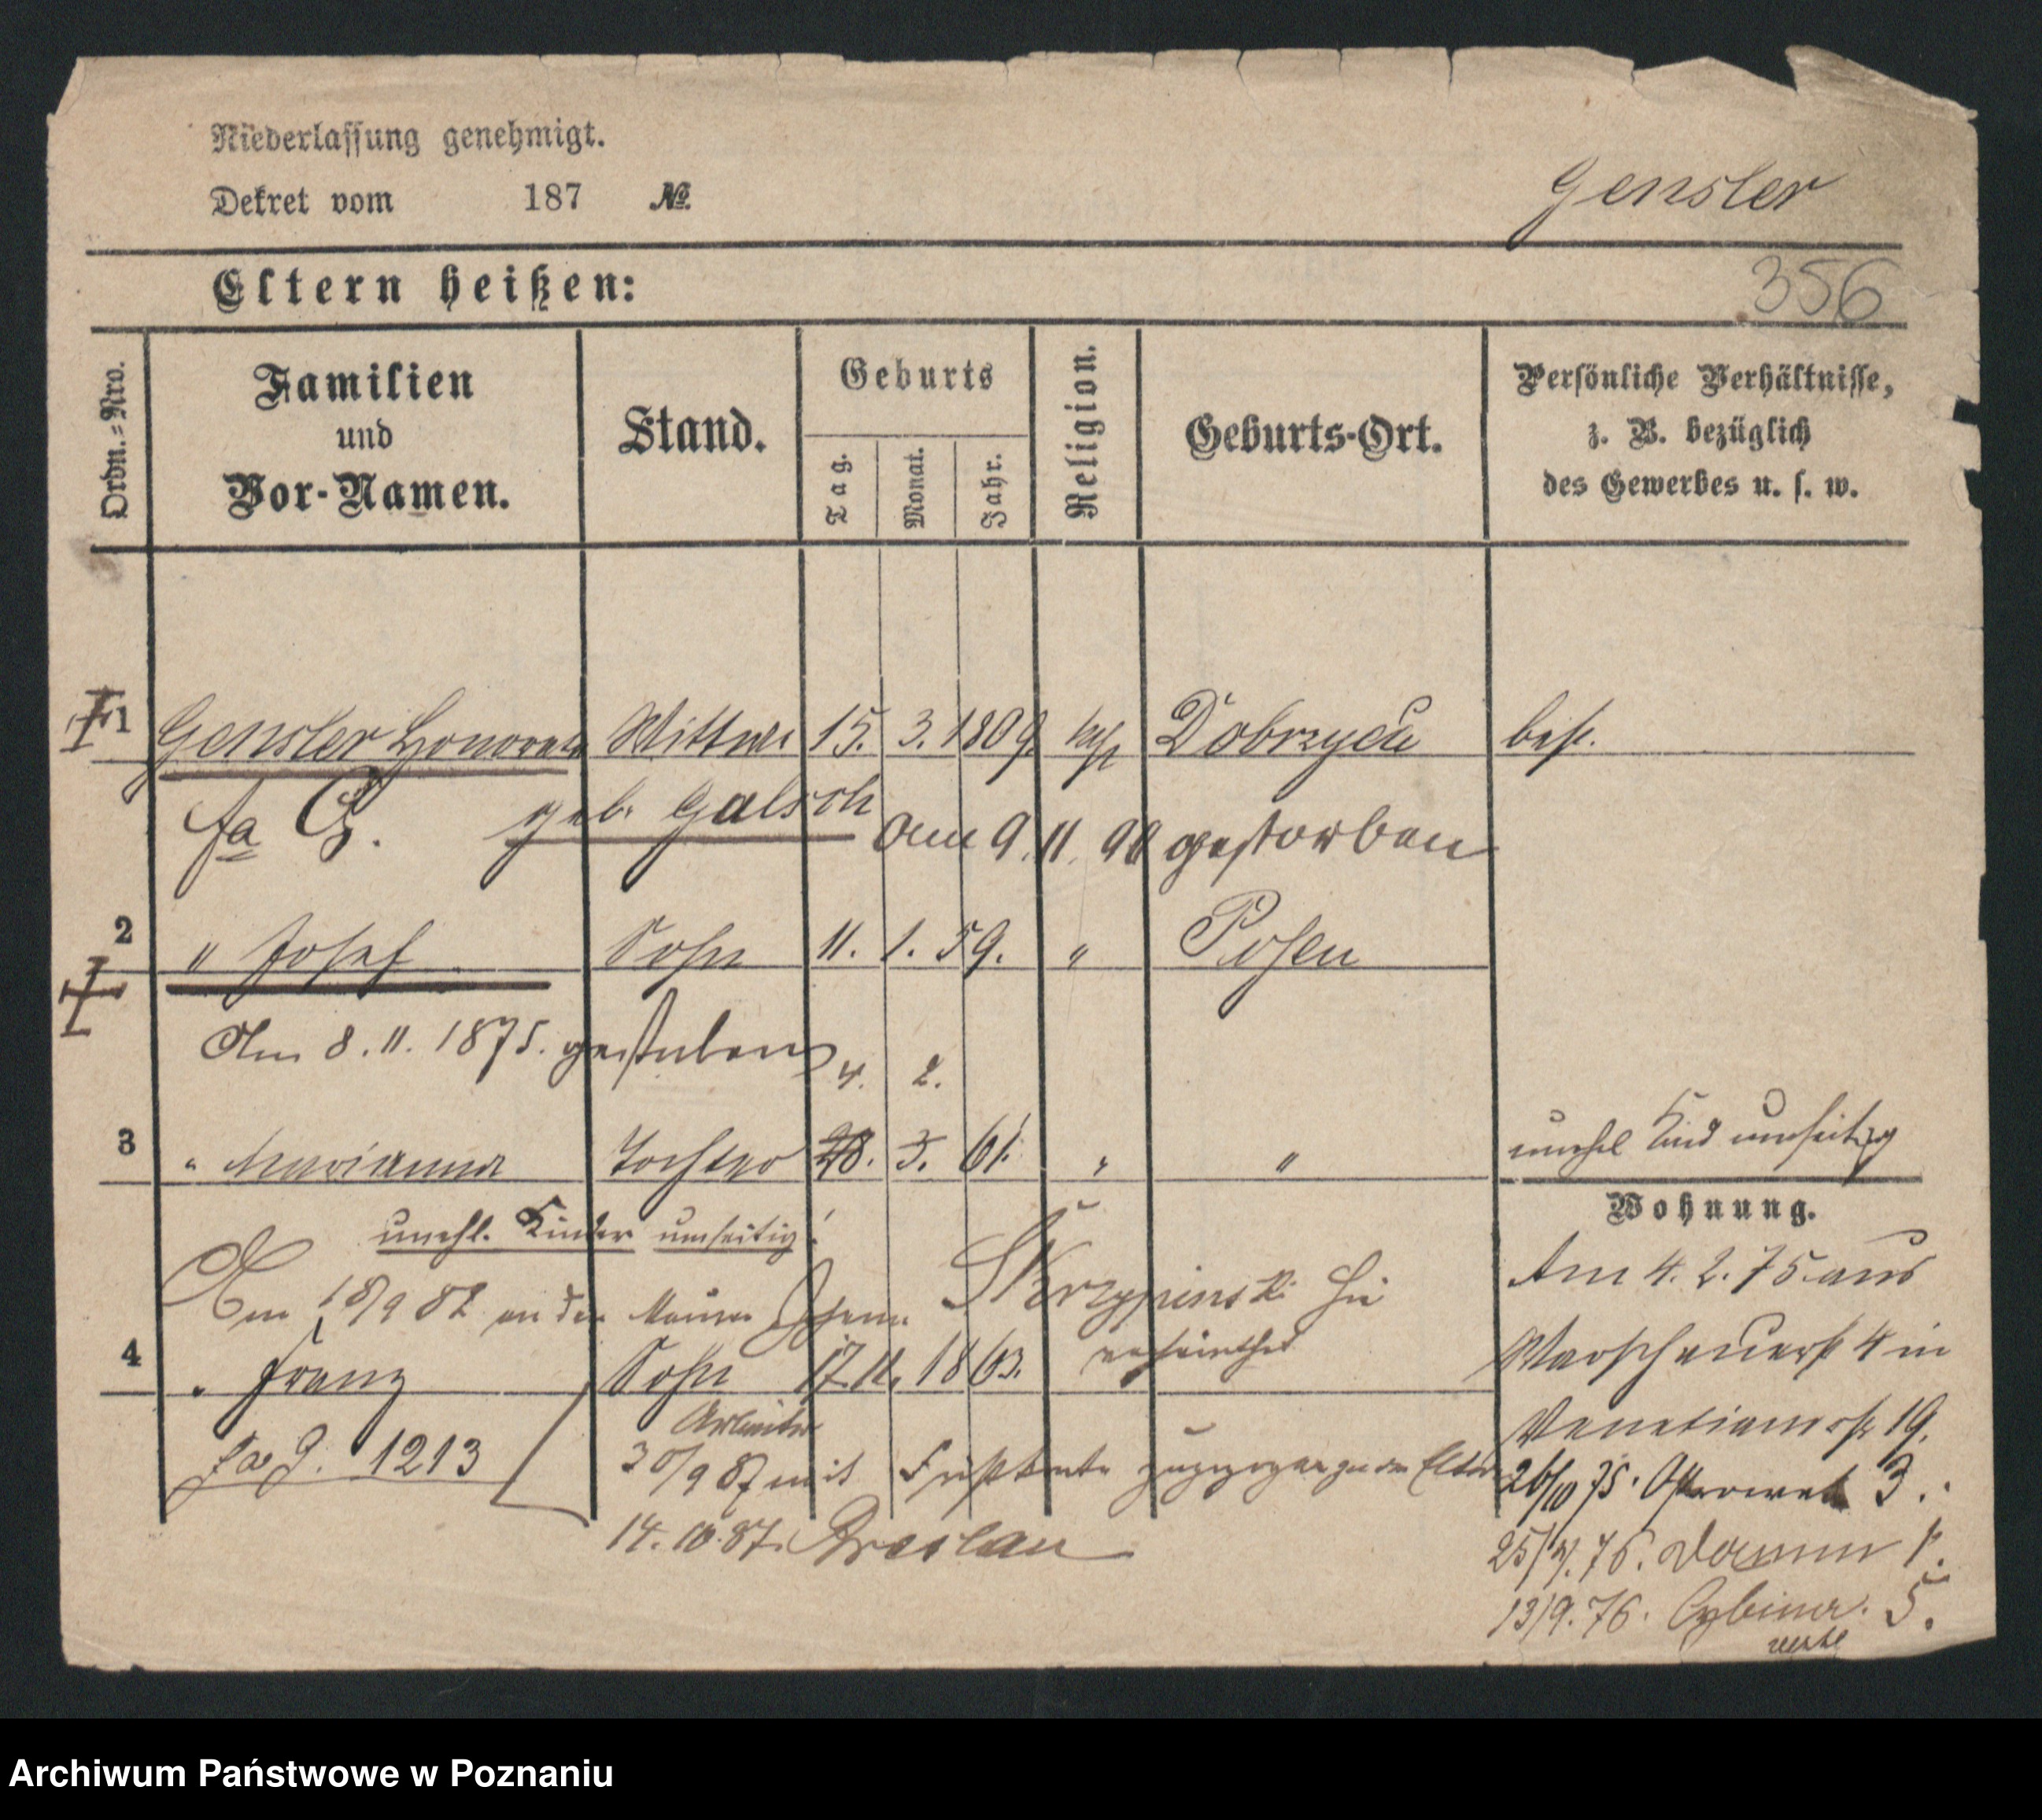 Niederlassung genehmigt.
Dekret vom 187 №.
Gensler
356
Eltern heißen:
Ordn.=Nro.
Familien
und
Vor-Namen.
Stand.
Geburts
Tag.
Monat.
Jahr.
Religion.
Geburts-Ort.
Persönliche Verhältnisse,
z. B. bezüglich
des Gewerbes u. s. w.
1 Gensler Honorata Wittwe 15. 3. 1809. kath Dobrzyca
fa G. geb. Galsch am 9. 11. 90 gestorben
2 " Josef Sohn 11. 1. 59. " Posen
Am 8. 11. 1875. gestorben
4. 2.
3 " Marianna Tochter 28. 3. 61. " " unehel Kind umseitig
Wohnung.
unehl. Kinder umseitig!
Am 18/9 82 an den Maurer Skrzypinski hie
verheirathet
4 " Franz Sohn 17 11. 1863.
Arbeiter
fa G. 1213
30/9 87 mit zugezogen zu den Eltern
14. 10. 87. Breslau
Am 4. 2. 75 aus
Warschauerst 4 in
Venetianerstr 19.
26/10 75. Ostrowek 3.
25/4. 76. Domm 1.
13/9. 76. Cybina. 5.